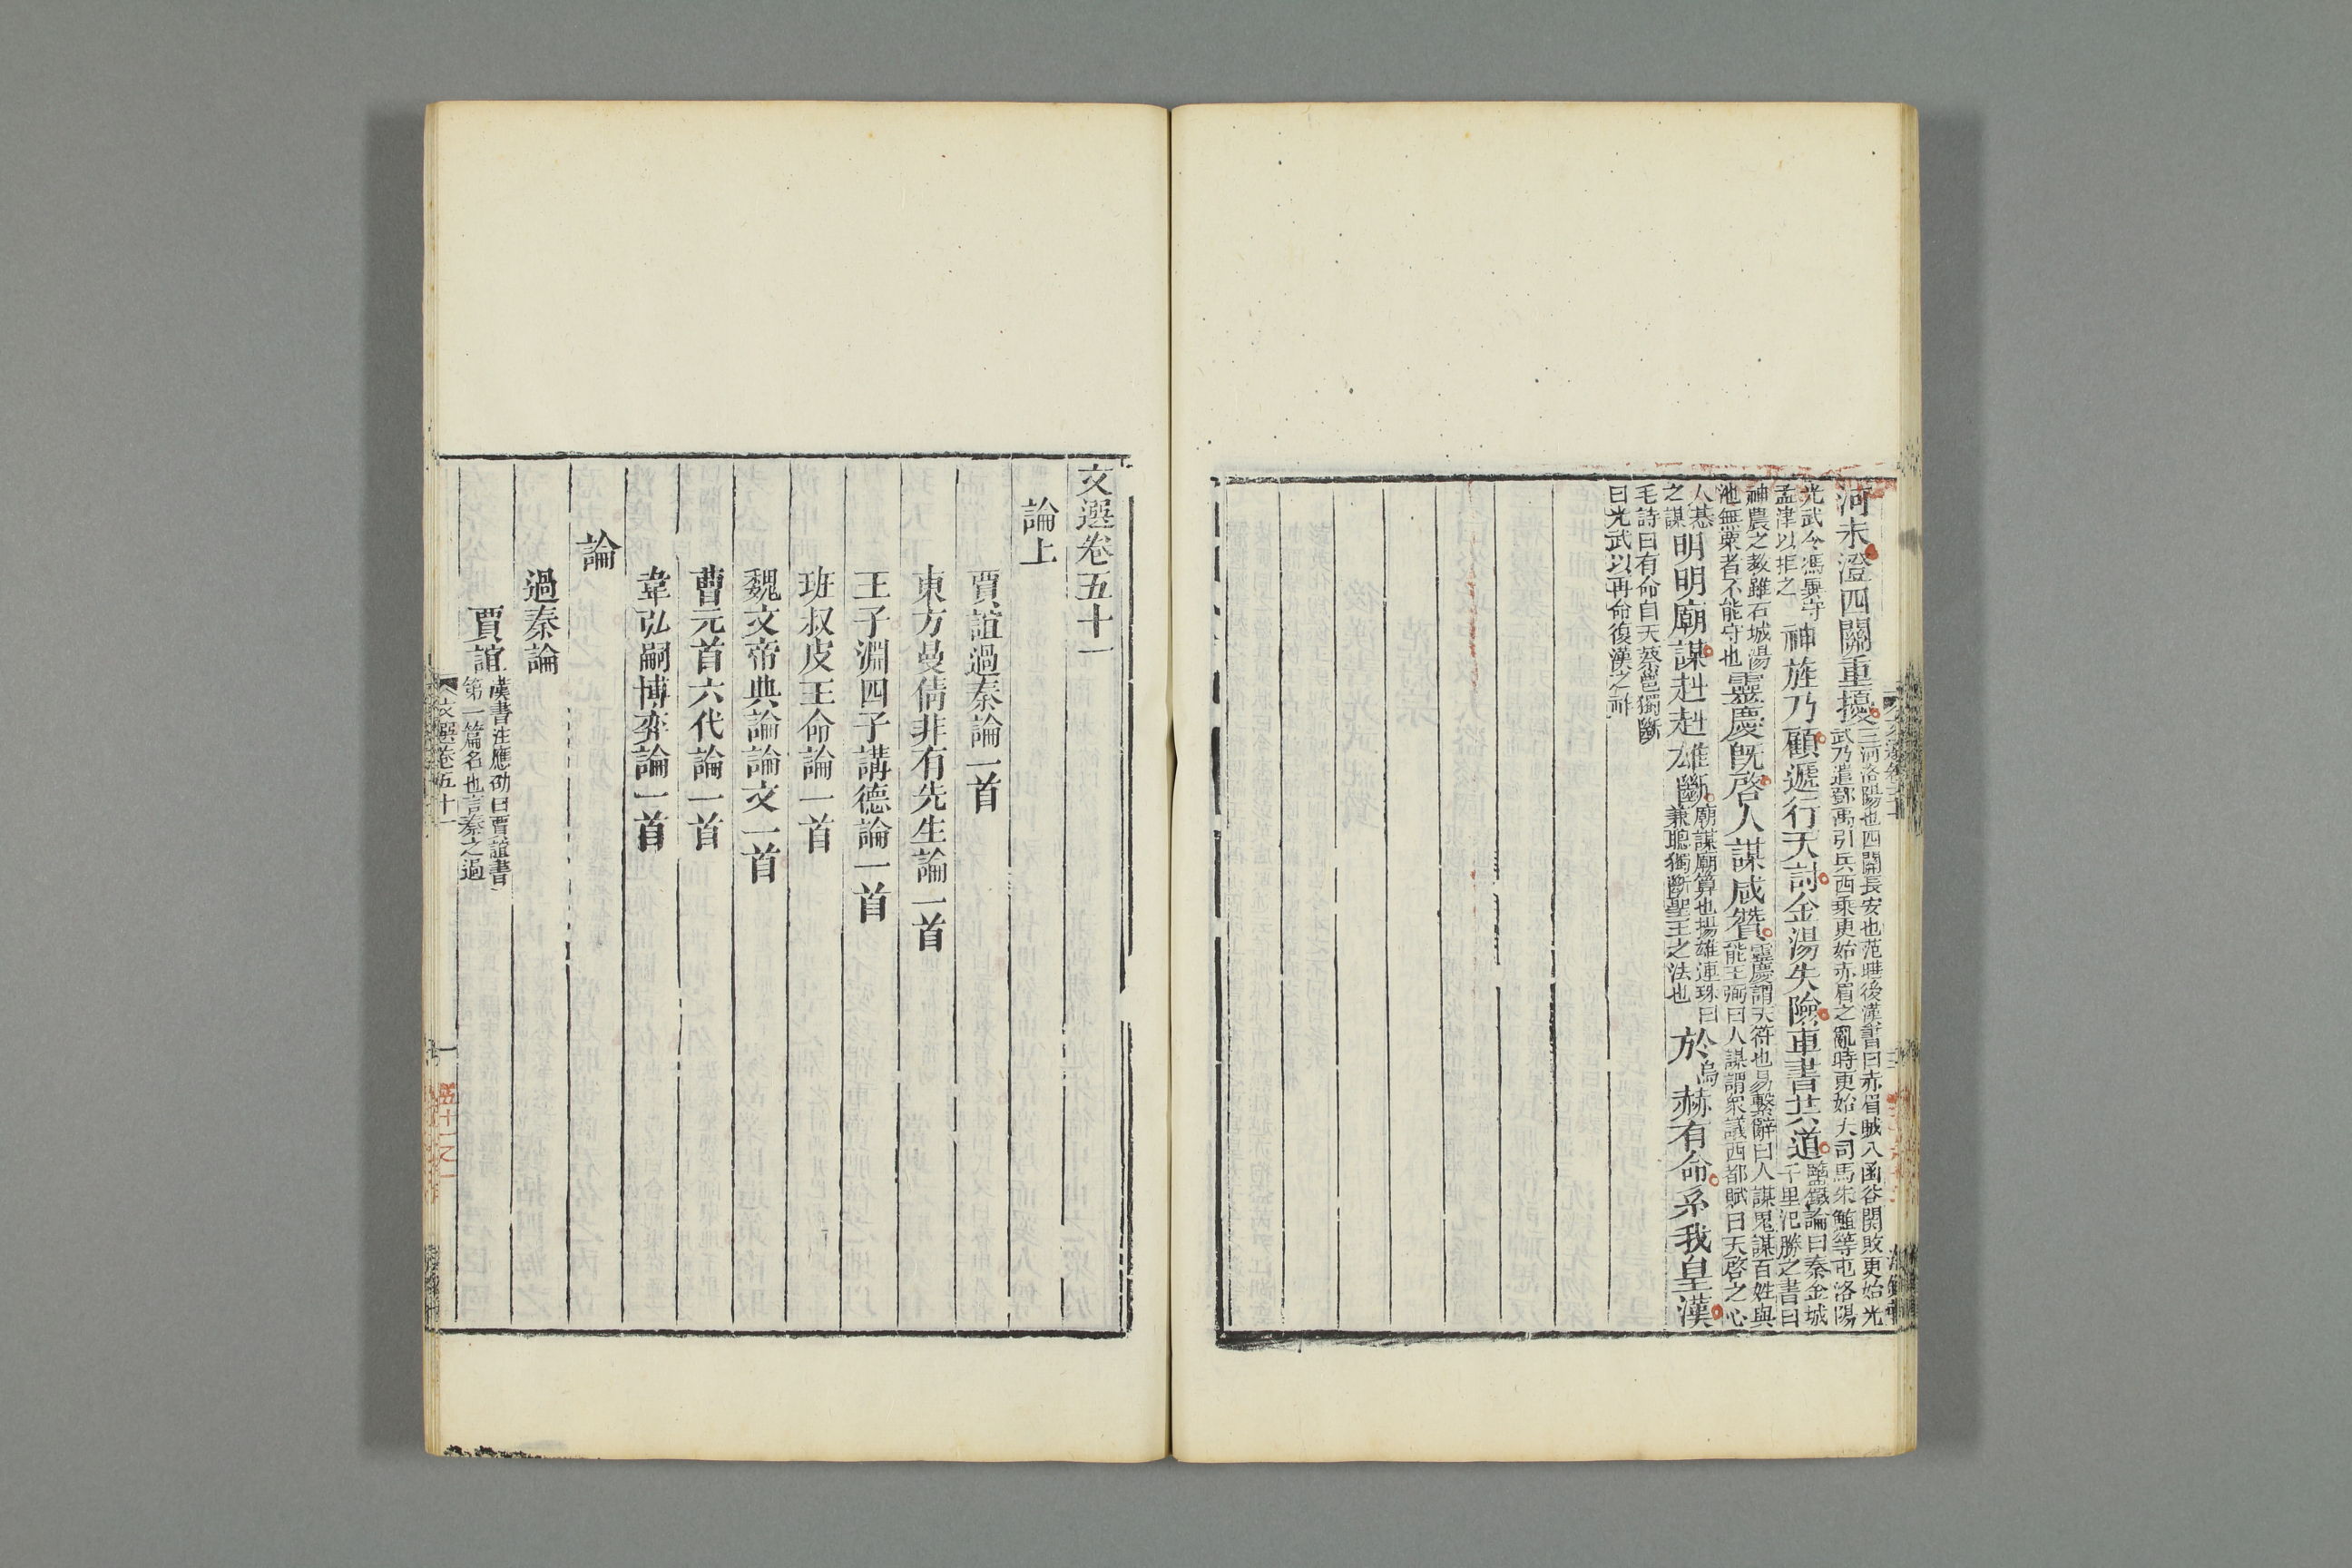 河未澄四關重擾三河洛陽也四關長安也范曄後漢書曰赤眉賊入函谷關敗更始光
武乃遣鄧禹引兵西乘更始赤眉之亂時更始大司馬朱鮪等屯洛陽
光武令馮異守
孟津以拒之神旌乃顧遞行天討金湯失險車書共道鹽鐵論曰秦金城
千里氾勝之書曰
神農之教雖石城湯
池無粟者不能守也靈慶既啓人謀咸贊靈慶謂天符也易繫辭曰人謀鬼謀百姓與
能王弼曰人謀謂衆議西都賦曰天啓之心
人惎
之謀明明廟謀赳赳雄斷廟謀廟算也揚雄連珠曰
兼聽獨斷聖王之法也於烏赫有命系我皇漢
毛詩曰有命自天蔡邕獨斷
曰光武以再命復漢之祚
文選卷五十一
論上
賈誼過秦論一首
東方曼倩非有先生論一首
王子淵四子講德論一首
班叔皮王命論一首
魏文帝典論論文一首
曹元首六代論一首
韋弘嗣博弈論一首
論
過秦論
賈誼漢書注應劭曰賈誼書
第一篇名也言秦之過
文選卷五十一
一
五十一之一